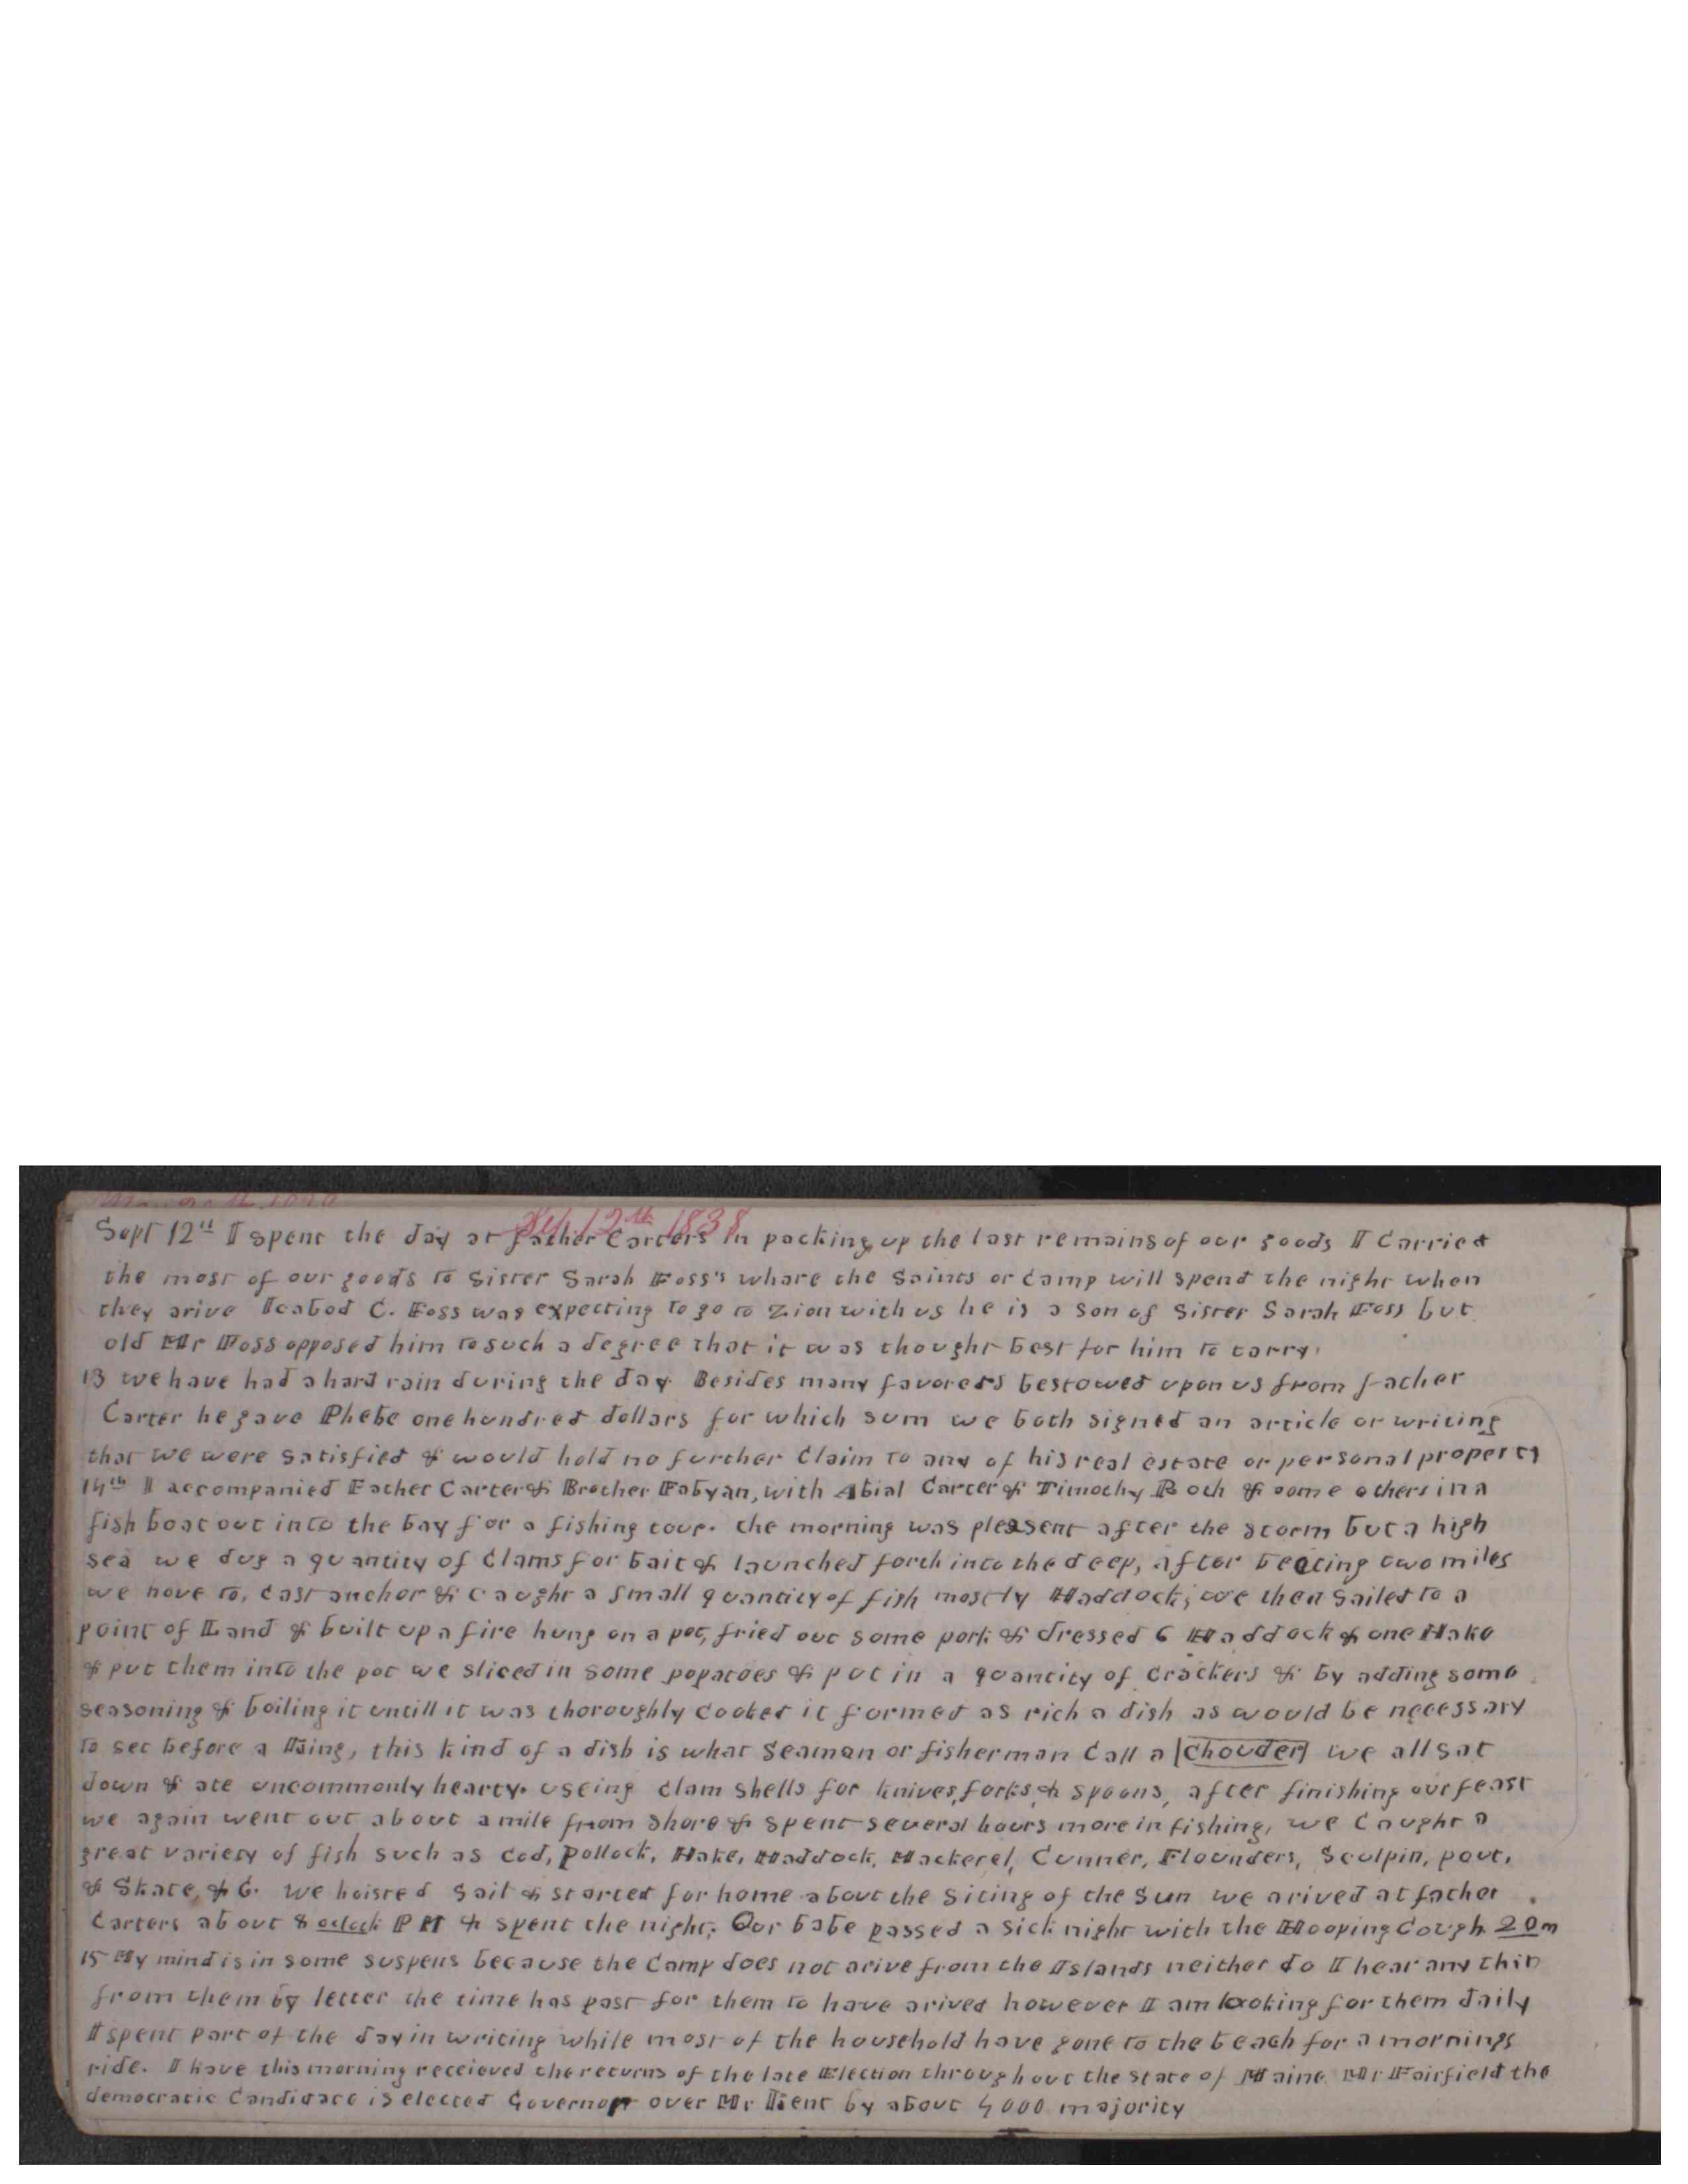 Sept 12th 1838
Sept 12th I spent the day at father Carters in packing up the last remains of our goods I Carried
the most of our goods to Sister Sarah Foss's whare the Saints or Camp will spend the night when
they arive Icabod C. Foss was expecting to go to Zion with us he is a son of Sister Sarah Foss but
old Mr Foss opposed him to such a degree that it was thought best for him to tarry.
13 we have had a hard rain during the day Besides many favorers bestowed upon us from father
Carter he gave Phebe one hundred dollars for which sum we both signed an article or writing
that we were satisfied & would hold no further Claim to any of his real estate or personal property
14th I accompanied Father Carter & Brother Fabyan, with Abial Carter & Timothy Roch & some others in a
fish boat out into the bay for a fishing tour. the morning was pleasent after the storm but a high
sea we dug a quantity of Clams for bait & launched forth into the deep, after beating two miles
we hove to, Cast anchor & caught a small quantity of fish mostly Haddock; we then sailed to a
point of Land & built up a fire hung on a pot, fried out some pork & dressed 6 Haddock & one Hake
& put them into the pot we sliced in some popatoes & put in a quantity of crackers & by adding some
seasoning & boiling it untill it was thoroughly Cooked it formed as rich a dish as would be necessary
to set before a King, this kind of a dish is what Seaman or fisherman Call a Chouder we all sat
down & ate uncommonly hearty. useing Clam shells for knives, forks, & spoons, after finishing our feast
we again went out about a mile from shore & spent several hours more in fishing, we Caught a
great variety of fish such as Cod, Pollock, Hake, Haddock, Mackerel, Cunner, Flounders, Sculpin, pout,
& Skate, & C. we hoisted Sail & started for home about the siting of the Sun we arived at father
Carters about 8 oclock PM & spent the night; Our babe passed a sick night with the Hooping Cough 20 m
15 My mind is in some suspens because the Camp does not arive from the Islands neither do I hear any thin
from them by letter the time has past for them to have arived however I am looking for them daily
I spent part of the day in writing while most of the household have gone to the beach for a mornings
ride. I have this morning receieved the returns of the late Election throughout the State of Maine Mr Fairfield the
democratic Candidate is elected Governor over Mr Kent by about 4000 majority